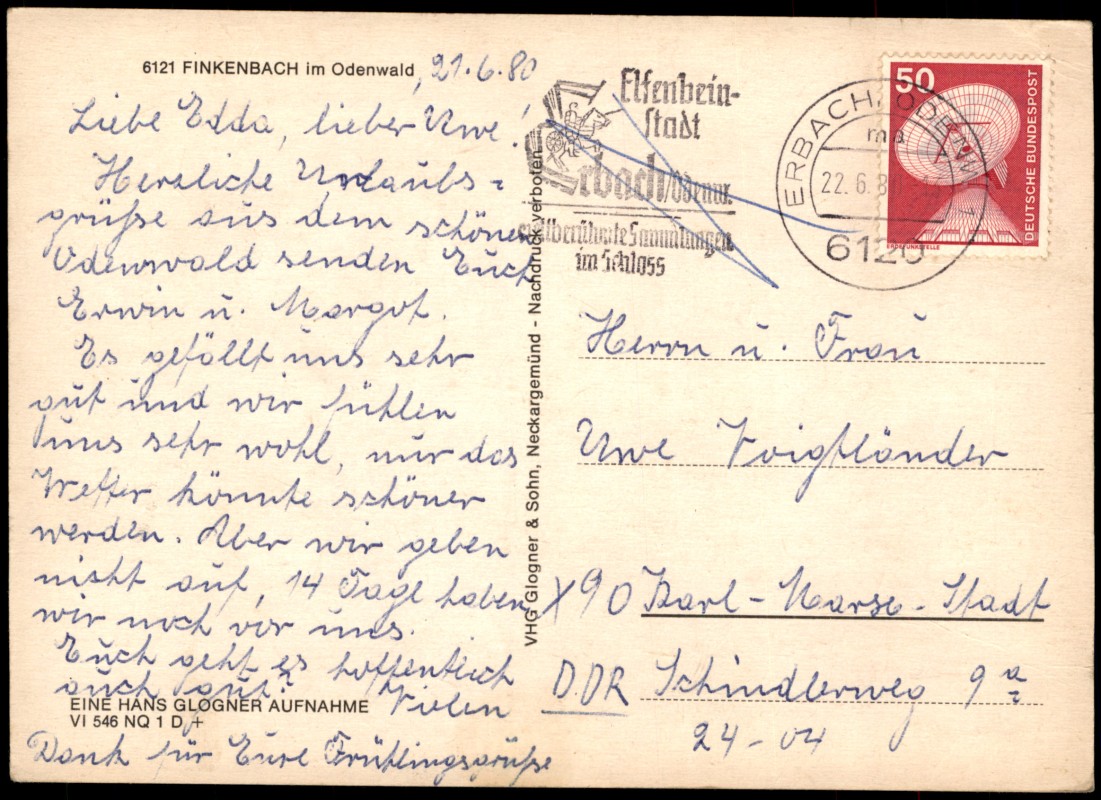 6121 FINKENBACH im Odenwald, 21.6.80
Liebe Edda, lieber Uwe!
Herzliche Urlaubs=
grüße aus dem schönen
Odenwald senden Euch
Erwin u. Margot.
Es gefällt uns sehr
gut und wir fühlen
uns sehr wohl, nur das
Wetter könnte schöner
werden. Aber wir geben
nicht auf, 14 Tage haben
wir noch vor uns.
Euch geht es hoffentlich
auch gut? Vielen
Dank für Eure Frühlingsgrüße
EINE HANS GLOGNER AUFNAHME
VI 546 NQ 1 D +
VHG Glogner & Sohn, Neckargemünd - Nachdruck verboten
Elfenbein-
stadt
Erbach/Odenw.
weltberühmte Sammlungen
im Schloss
ERBACH, ODENW 1
ma
22.6.80
6120
50
DEUTSCHE BUNDESPOST
ERDEFUNKSTELLE
Herrn u. Frau
Uwe Voigtländer
X90 Karl-Marx-Stadt
DDR Schindlerweg 9a
24-04